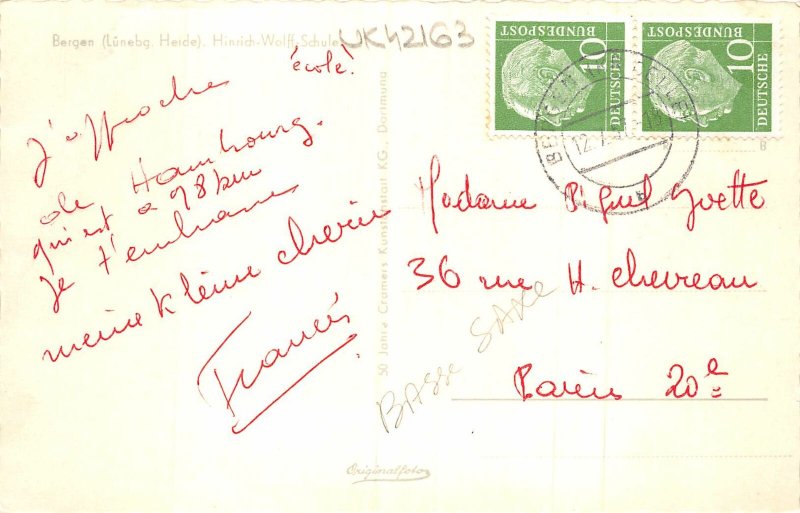 Bergen (Lünebg. Heide), Hinrich-Wolff-Schule
UK42163
école!
J'approche
de Hambourg.
qui est à 98 km
Je t'embrasse
meine kleine chérie
Francis
50 Jahre Cramers Kunstanstalt KG., Dortmund
BASSE SAXE
Originalfoto
10
DEUTSCHE
BUNDESPOST
10
DEUTSCHE
BUNDESPOST
B
Madame Piguel Yvette
36 rue H. Chevreau
Paris 20e